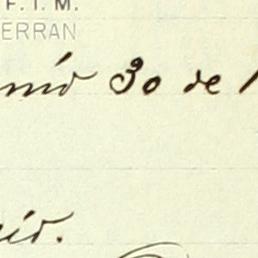 F. I. M.
ERRAN
nió 30 de 1
ió.